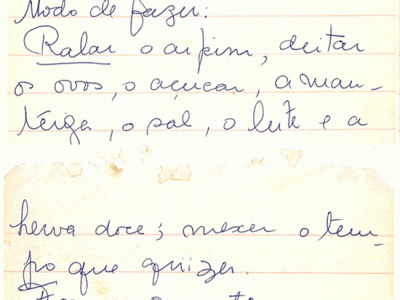 Modo de fazer:
Ralar o aipim, deitar
os ovos, o açucar, a man-
têiga, o sal, o leite e a
herva doce; mexer o tem-
po que quizer.